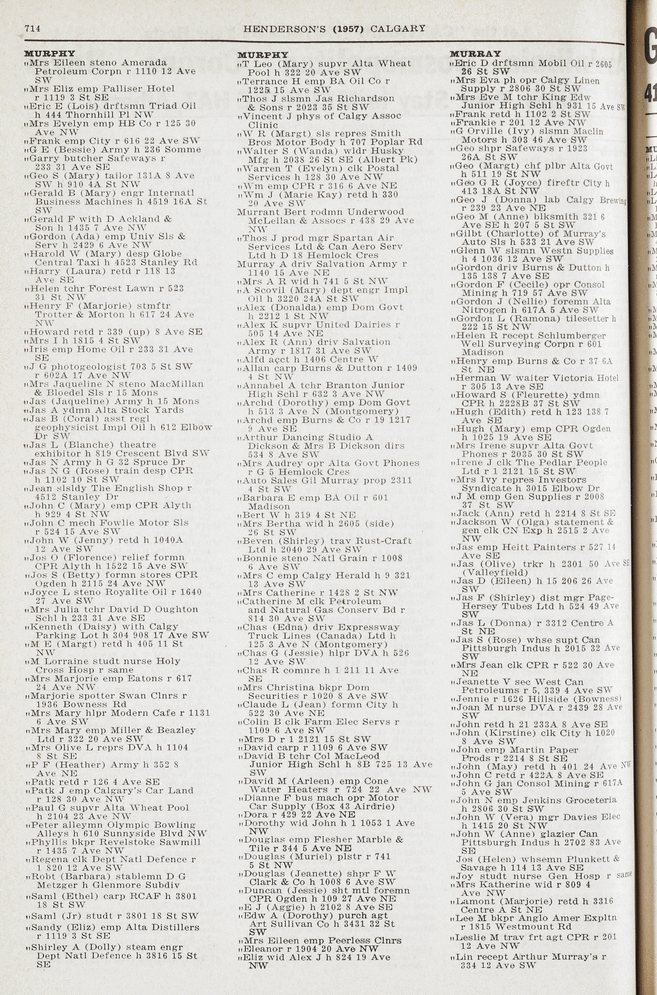 714
HENDERSON'S (1957) CALGARY
MURPHY
„Mrs Eileen steno Amerada
Petroleum Corpn r 1110 12 Ave
SW
„Mrs Eliz emp Palliser Hotel
r 1119 3 St SE
„Eric E (Lois) drftsmn Triad Oil
h 444 Thornhill Pl NW
„Mrs Evelyn emp HB Co r 125 30
Ave NW
„Frank emp City r 616 22 Ave SW
„G E (Bessie) Army h 236 Somme
„Garry butcher Safeways r
233 31 Ave SE
„Geo S (Mary) tailor 131A 8 Ave
SW h 910 4A St NW
„Gerald B (Mary) engr Internatl
Business Machines h 4519 16A St
SW
„Gerald F with D Ackland &
Son h 1435 7 Ave NW
„Gordon (Ada) emp Univ Sls &
Serv h 2429 6 Ave NW
„Harold W (Mary) desp Globe
Central Taxi h 4523 Stanley Rd
„Harry (Laura) retd r 118 13
Ave SE
„Helen tchr Forest Lawn r 523
31 St NW
„Henry F (Marjorie) stmftr
Trotter & Morton h 617 24 Ave
NW
„Howard retd r 339 (up) 8 Ave SE
„Mrs I h 1815 4 St SW
„Iris emp Home Oil r 233 31 Ave
SE
„J G photogeologist 703 5 St SW
r 602A 17 Ave NW
„Mrs Jaqueline N steno MacMillan
& Bloedel Sls r 15 Mons
„Jas (Jaqueline) Army h 15 Mons
„Jas A ydmn Alta Stock Yards
„Jas B (Coral) asst regl
geophysicist Impl Oil h 612 Elbow
Dr SW
„Jas L (Blanche) theatre
exhibitor h 819 Crescent Blvd SW
„Jas N Army h G 32 Spruce Dr
„Jas N G (Rose) train desp CPR
h 1102 10 St SW
„Jean slsldy The English Shop r
4512 Stanley Dr
„John C (Mary) emp CPR Alyth
h 929 4 St NW
„John C mech Fowlie Motor Sls
r 524 15 Ave SW
„John W (Jenny) retd h 1040A
12 Ave SW
„Jos O (Florence) relief formn
CPR Alyth h 1522 15 Ave SW
„Jos S (Betty) formn stores CPR
Ogden h 2115 24 Ave NW
„Joyce L steno Royalite Oil r 1640
27 Ave SW
„Mrs Julia tchr David D Oughton
Schl h 233 31 Ave SE
„Kenneth (Daisy) with Calgary
Parking Lot h 304 908 17 Ave SW
„M E (Margt) retd h 405 11 St
NW
„M Lorraine studt nurse Holy
Cross Hosp r same
„Mrs Marjorie emp Eatons r 617
24 Ave NW
„Marjorie spotter Swan Clnrs r
1936 Bowness Rd
„Mrs Mary hlpr Modern Cafe r 1131
6 Ave SW
„Mrs Mary emp Miller & Beazley
Ltd r 322 20 Ave SW
„Mrs Olive L reprs DVA h 1104
8 St SE
„P F (Heather) Army h 352 8
Ave NE
„Patk retd r 126 4 Ave SE
„Patk J emp Calgary's Car Land
r 128 30 Ave NW
„Paul G supvr Alta Wheat Pool
h 2104 23 Ave NW
„Peter alleymn Olympic Bowling
Alleys h 610 Sunnyside Blvd NW
„Phyllis bkpr Revelstoke Sawmill
r 1435 7 Ave NW
„Regena clk Dept Natl Defence r
1 820 12 Ave SW
„Robt (Barbara) stablemn D G
Metzger h Glenmore Subdiv
„Saml (Ethel) carp RCAF h 3801
18 St SW
„Saml (Jr) studt r 3801 18 St SW
„Sandy (Eliz) emp Alta Distillers
r 1119 3 St SE
„Shirley A (Dolly) steam engr
Dept Natl Defence h 3816 15 St
SE
MURPHY
„T Leo (Mary) supvr Alta Wheat
Pool h 322 20 Ave SW
„Terrance H emp BA Oil Co r
1225 15 Ave SW
„Thos J slsmn Jas Richardson
& Sons r 2023 35 St SW
„Vincent J phys of Calgy Assoc
Clinic
„W R (Margt) sls repres Smith
Bros Motor Body h 707 Poplar Rd
„Walter S (Wanda) wldr Husky
Mfg h 2038 26 St SE (Albert Pk)
„Warren T (Evelyn) clk Postal
Services h 128 30 Ave NW
„Wm emp CPR r 316 6 Ave NE
„Wm J (Marie Kay) retd h 330
20 Ave SW
Murrant Bert rodmn Underwood
McLellan & Assocs r 438 29 Ave
NW
„Thos J prod mgr Spartan Air
Services Ltd & Can Aero Serv
Ltd h D 18 Hemlock Cres
Murray A driv Salvation Army r
1140 15 Ave NE
„Mrs A R wid h 741 5 St NW
„A Scovil (Mary) dept engr Impl
Oil h 3220 24A St SW
„Alex (Donalda) emp Dom Govt
h 2212 1 St NW
„Alex K supvr United Dairies r
505 14 Ave NE
„Alex R (Ann) driv Salvation
Army r 1817 31 Ave SW
„Alfd acct h 1406 Centre W
„Allan carp Burns & Dutton r 1409
4 St NW
„Annabel A tchr Branton Junior
High Schl r 632 3 Ave NW
„Archd (Dorothy) emp Dom Govt
h 513 3 Ave N (Montgomery)
„Archd emp Burns & Co r 19 1217
9 Ave SE
„Arthur Dancing Studio A
Dickson & Mrs B Dickson dirs
534 8 Ave SW
„Mrs Audrey opr Alta Govt Phones
r G 5 Hemlock Cres
„Auto Sales Gil Murray prop 2311
4 St SW
„Barbara E emp BA Oil r 601
Madison
„Bert W h 319 4 St NE
„Mrs Bertha wid h 2605 (side)
26 St SW
„Beven (Shirley) trav Rust-Craft
Ltd h 2040 29 Ave SW
„Bonnie steno Natl Grain r 1008
6 Ave SW
„Mrs C emp Calgy Herald h 9 321
13 Ave SW
„Mrs Catherine r 1428 2 St NW
„Catherine M clk Petroleum
and Natural Gas Conserv Bd r
814 30 Ave SW
„Chas (Edna) driv Expressway
Truck Lines (Canada) Ltd h
125 3 Ave N (Montgomery)
„Chas G (Jessie) hlpr DVA h 526
12 Ave SW
„Chas R comnre h 1 211 11 Ave
SE
„Mrs Christina bkpr Dom
Securities r 1020 8 Ave SW
„Claude L (Jean) formn City h
522 30 Ave NE
„Colin B clk Farm Elec Servs r
1109 6 Ave SW
„Mrs D r 1 2121 15 St SW
„David carp r 1109 6 Ave SW
„David B tchr Col MacLeod
Junior High Schl h 8B 725 13 Ave
SW
„David M (Arleen) emp Cone
Water Heaters r 724 22 Ave NW
„Dianne F bus mach opr Motor
Car Supply (Box 43 Airdrie)
„Dora r 429 22 Ave NE
„Dorothy wid John h 1 1053 1 Ave
NW
„Douglas emp Flesher Marble &
Tile r 344 5 Ave NE
„Douglas (Muriel) plstr r 741
5 St NW
„Douglas (Jeanette) shpr F W
Clark & Co h 1008 6 Ave SW
„Duncan (Jessie) sht mtl foremn
CPR Ogden h 109 27 Ave NE
„E J (Aggie) h 2102 8 Ave SE
„Edw A (Dorothy) purch agt
Art Sullivan Co h 3431 32 St
SW
„Mrs Eileen emp Peerless Clnrs
„Eleanor r 1904 20 Ave NW
„Eliz wid Alex J h 824 19 Ave
NW
MURRAY
„Eric D drftsmn Mobil Oil r 2605
26 St SW
„Mrs Eva ph opr Calgy Linen
Supply r 2806 30 St SW
„Mrs Eve M tchr King Edw
Junior High Schl h 931 15 Ave SW
„Frank retd h 1102 2 St SW
„Frankie r 201 12 Ave NW
„G Orville (Ivy) slsmn Maclin
Motors h 303 46 Ave SW
„Geo shpr Safeways r 1923
26A St SW
„Geo (Margt) chf plbr Alta Govt
h 511 19 St NW
„Geo G R (Joyce) fireftr City h
413 18A St NW
„Geo J (Donna) lab Calgy Brewing
r 239 23 Ave NE
„Geo M (Anne) blksmith 321 6
Ave SE h 207 5 St SW
„Gilbt (Charlotte) of Murray's
Auto Sls h 533 21 Ave SW
„Glenn W slsmn Westn Supplies
h 4 1036 12 Ave SW
„Gordon driv Burns & Dutton h
135 138 7 Ave SE
„Gordon F (Cecile) opr Consol
Mining h 719 57 Ave SW
„Gordon J (Nellie) foremn Alta
Nitrogen h 617A 5 Ave SW
„Gordon L (Ramona) tilesetter h
222 15 St NW
„Helen R recept Schlumberger
Well Surveying Corpn r 601
Madison
„Henry emp Burns & Co r 37 6A
St NE
„Herman W waiter Victoria Hotel
r 305 13 Ave SE
„Howard S (Fleurette) ydmn
CPR h 2228B 37 St SW
„Hugh (Edith) retd h 123 138 7
Ave SE
„Hugh (Mary) emp CPR Ogden
h 1025 19 Ave SE
„Mrs Irene supvr Alta Govt
Phones r 2035 30 St SW
„Irene J clk The Pedlar People
Ltd r 1 2121 15 St SW
„Mrs Ivy repres Investors
Syndicate h 3015 Elbow Dr
„J M emp Gen Supplies r 2008
37 St SW
„Jack (Ann) retd h 2214 8 St SE
„Jackson W (Olga) statement &
gen clk CN Exp h 2515 2 Ave
NW
„Jas emp Heitt Painters r 527 14
Ave SE
„Jas (Olive) trkr h 2301 50 Ave SE
(Valleyfield)
„Jas D (Eileen) h 15 206 26 Ave
SW
„Jas F (Shirley) dist mgr Page-
Hersey Tubes Ltd h 524 49 Ave
SW
„Jas L (Donna) r 3312 Centre A
St NE
„Jas S (Rose) whse supt Can
Pittsburgh Indus h 2015 32 Ave
SW
„Mrs Jean clk CPR r 522 30 Ave
NE
„Jeanette V sec West Can
Petroleums r 5, 339 4 Ave SW
„Jennie r 1626 Hillside (Bowness)
„Joan M nurse DVA r 2439 28 Ave
SW
„John retd h 21 233A 8 Ave SE
„John (Kirstine) clk City h 1020
8 Ave SW
„John emp Martin Paper
Prods r 2214 8 St SE
„John (May) retd h 401 24 Ave NW
„John C retd r 422A 8 Ave SE
„John G jan Consol Mining r 617A
5 Ave SW
„John N emp Jenkins Groceteria
h 2806 30 St SW
„John W (Vera) mgr Davies Elec
h 1415 20 St NW
„John W (Anne) glazier Can
Pittsburgh Indus h 2702 83 Ave
SE
Jos (Helen) whsemn Plunkett &
Savage h 114 13 Ave SE
„Joy studt nurse Gen Hosp r same
„Mrs Katherine wid r 809 4
Ave NW
„Lamont (Marjorie) retd h 3316
Centre A St NE
„Lee M bkpr Anglo Amer Expltn
r 1815 Westmount Rd
„Leslie M trav frt agt CPR r 201
12 Ave NW
„Lin recept Arthur Murray's r
334 12 Ave SW